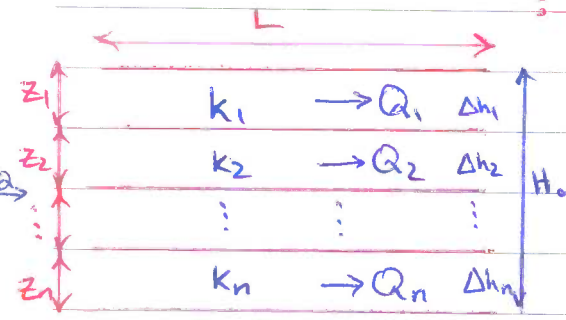 L
z₁ k₁ → Q₁ Δh₁
z₂ k₂ → Q₂ Δh₂
Q → H₀
⋮ ⋮ ⋮ ⋮
zₙ kₙ → Qₙ Δhₙ